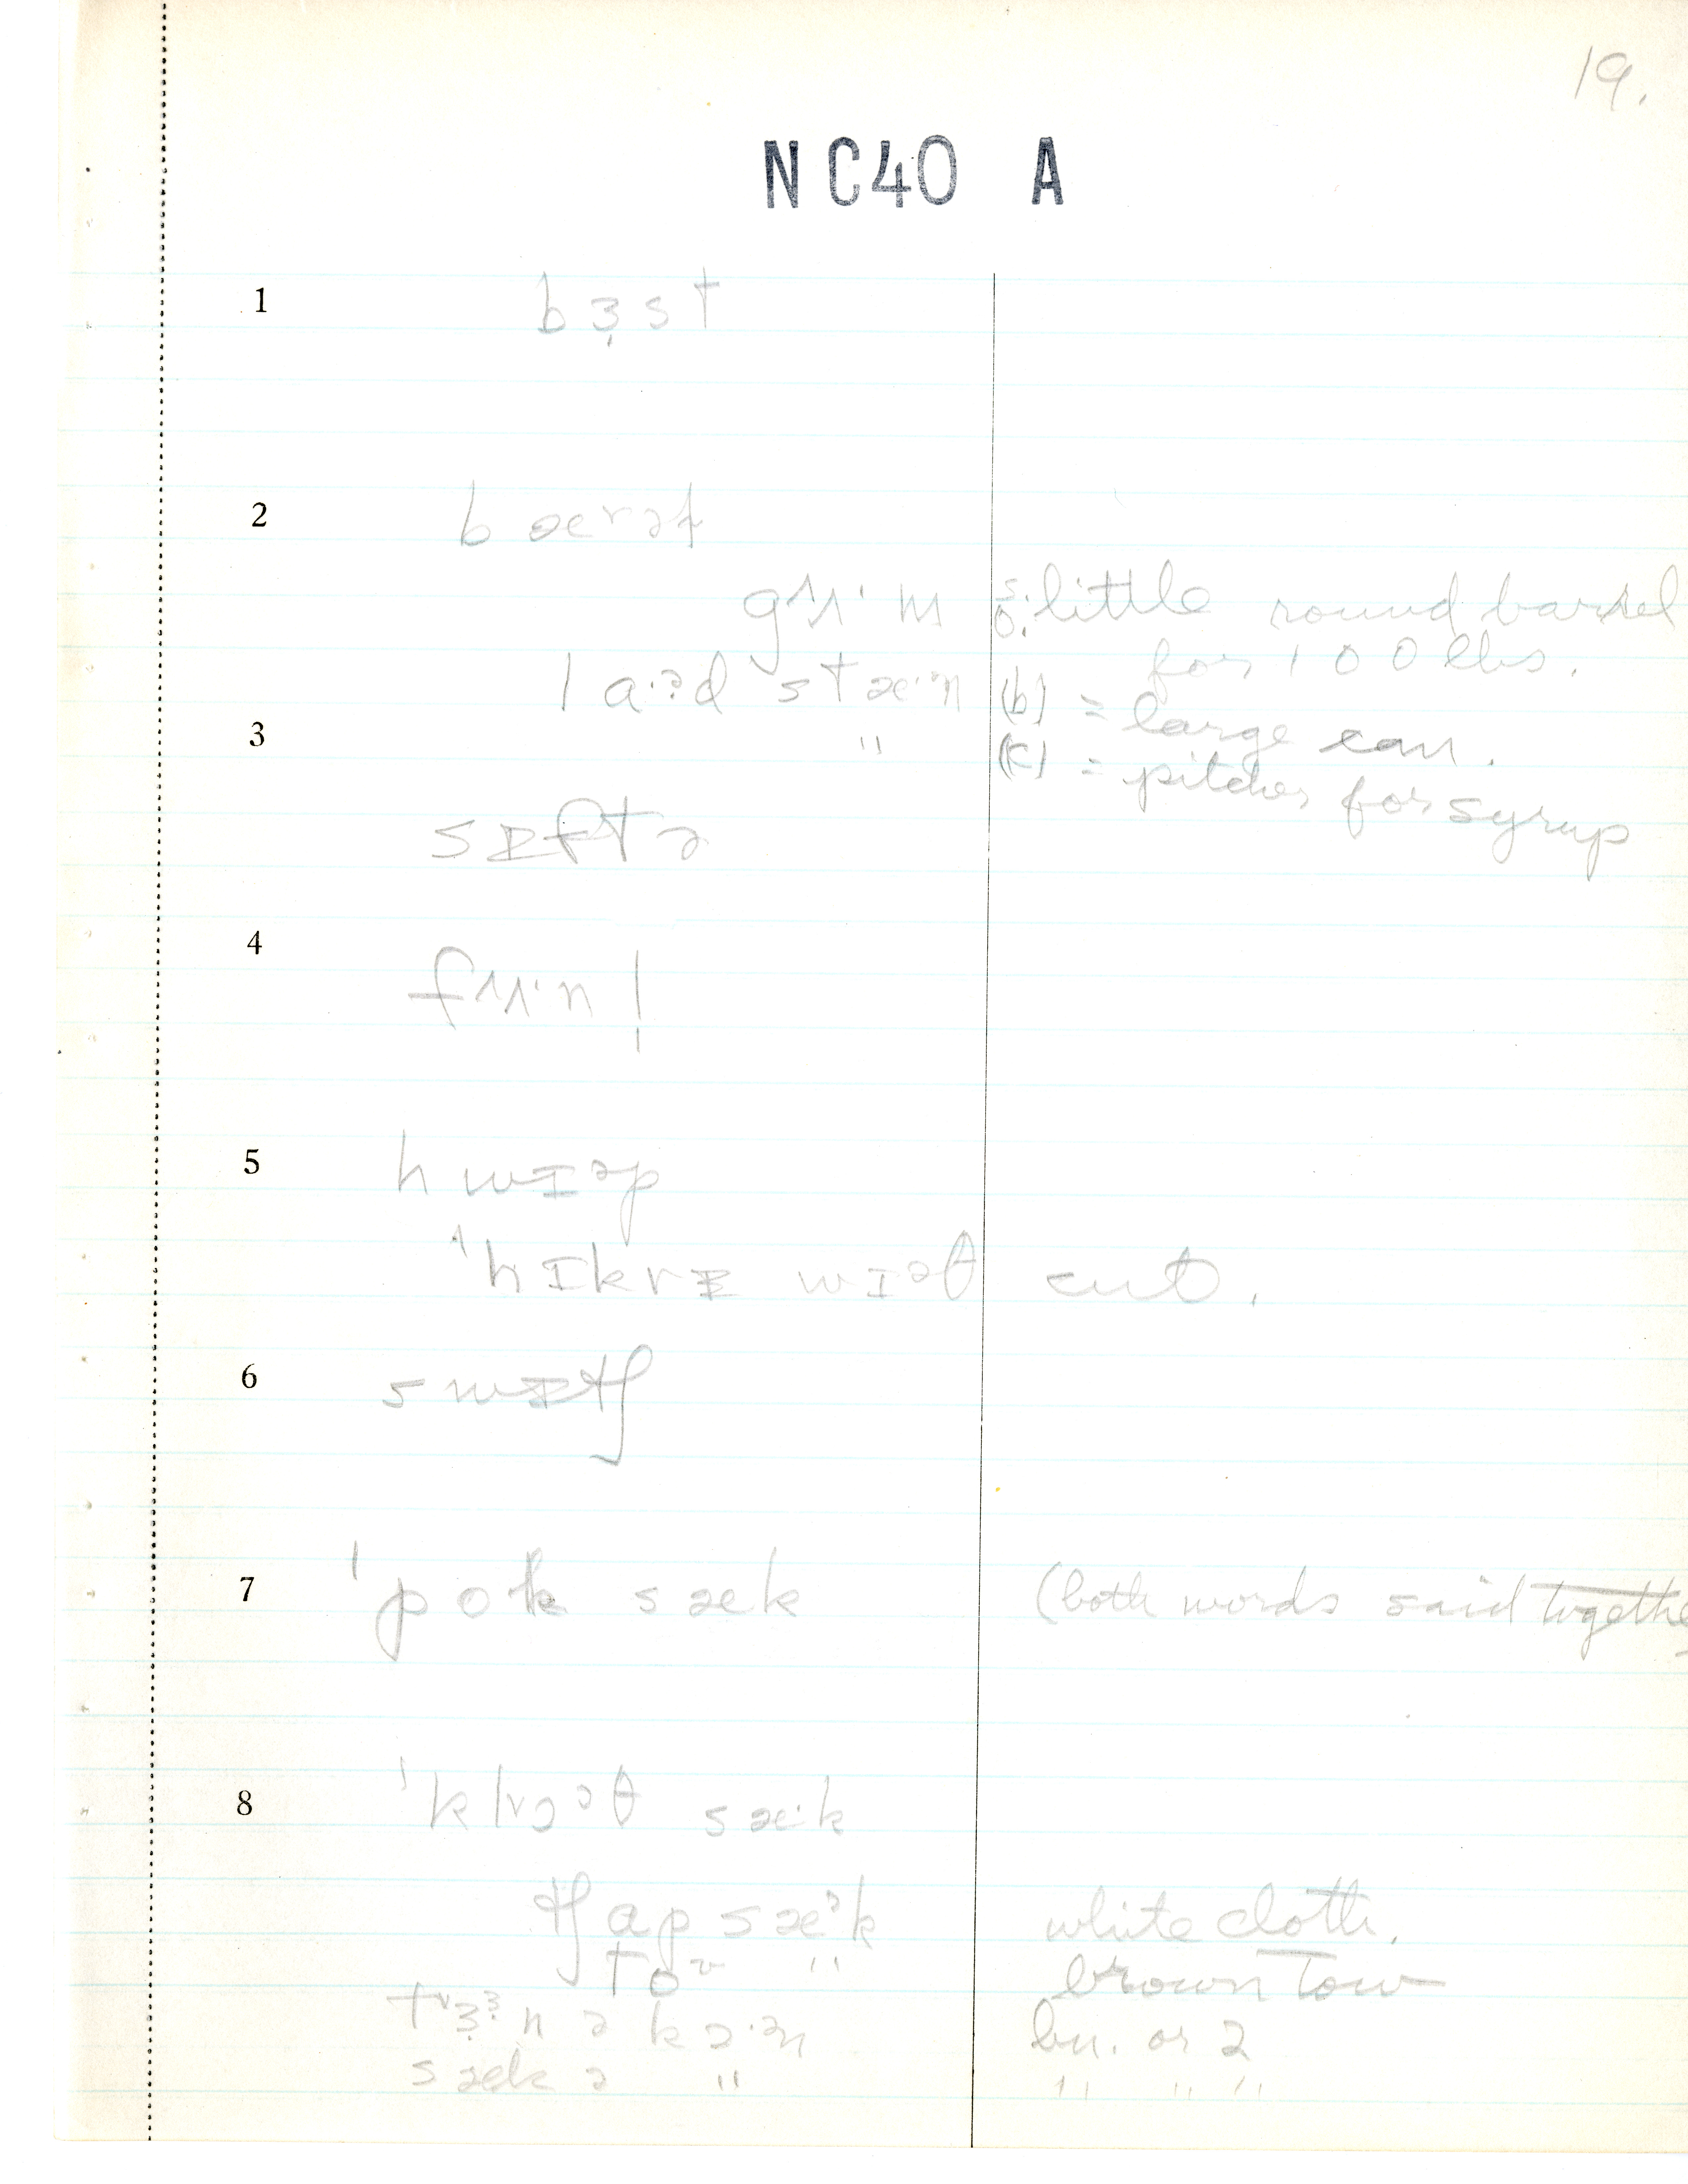 19.
NC40 A
1 bɜ̣st
2 bærəɫ
s. little round barrel
o. for 100 lbs.
laᵊ·d stæ·ᵊn (b) = large can.
3 " (k) = pitcher for syrup
sɪftə
4
5 hwɪᵊp
ˈhɪkrɪ wɪᵊθ cut.
6 swɪtʃ
7 ˈpok sæk (both words said together
8 sæ·k
tʃap sæᵊk white cloth.
toᶷ " brown tow
ə kɔ·ᵊn bu. or 2
sæk ə " " " "